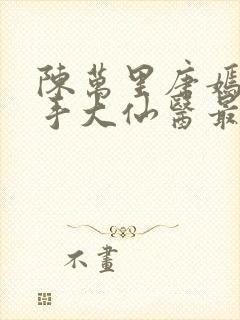 陳萬里唐嫣
手大仙醫最
不畫